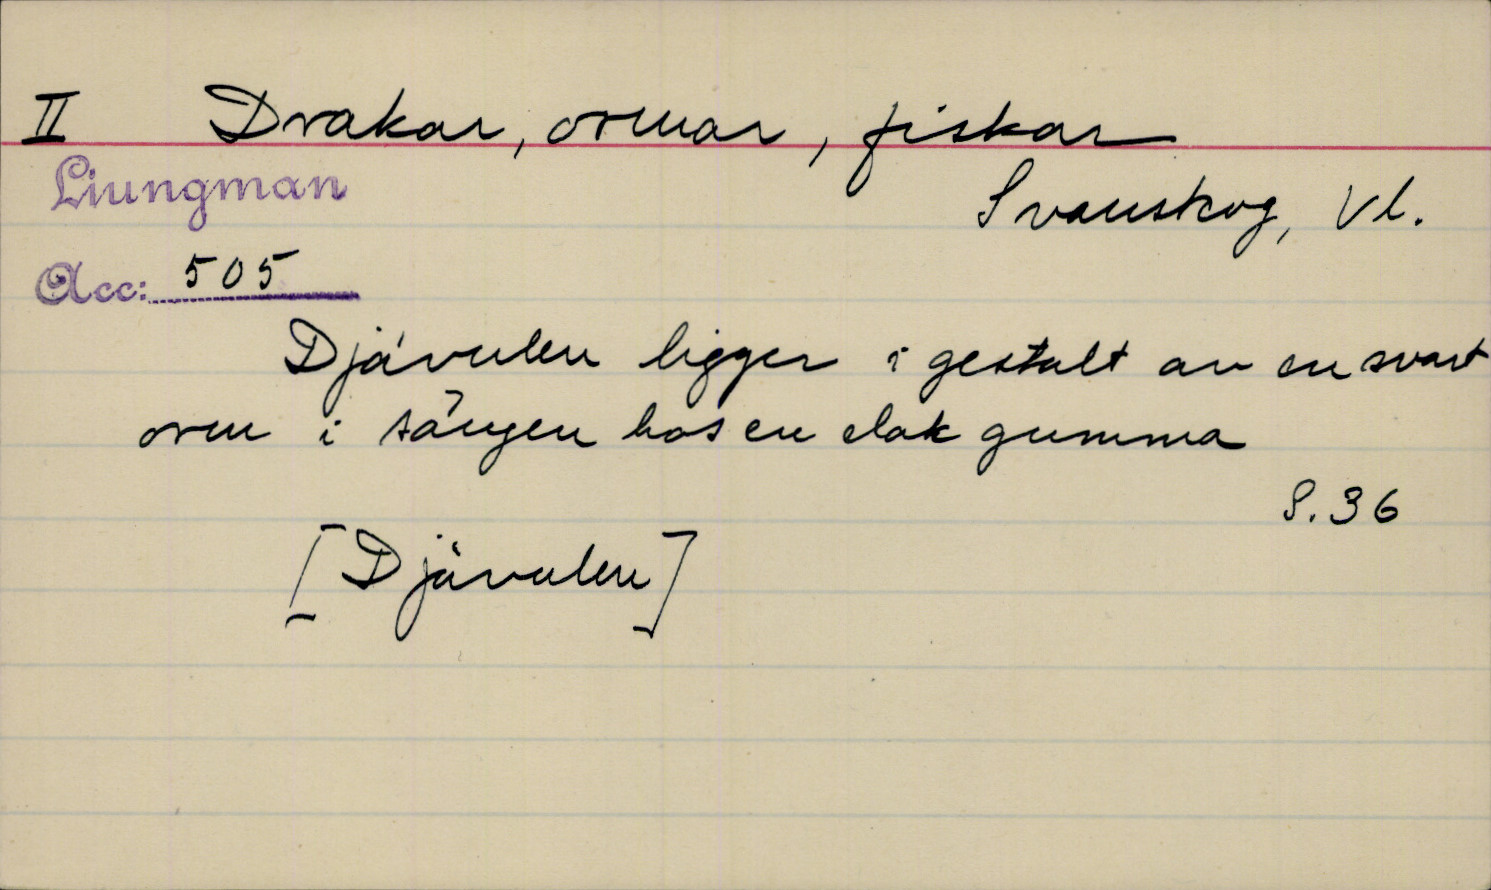 II Drakar, ormar, fiskar
Liungman
Svanskog, Vl.
Acc: 505
Djävulen ligger i gestalt av en svart
orm i sängen hos en elak gumma
S. 36
[Djävulen]